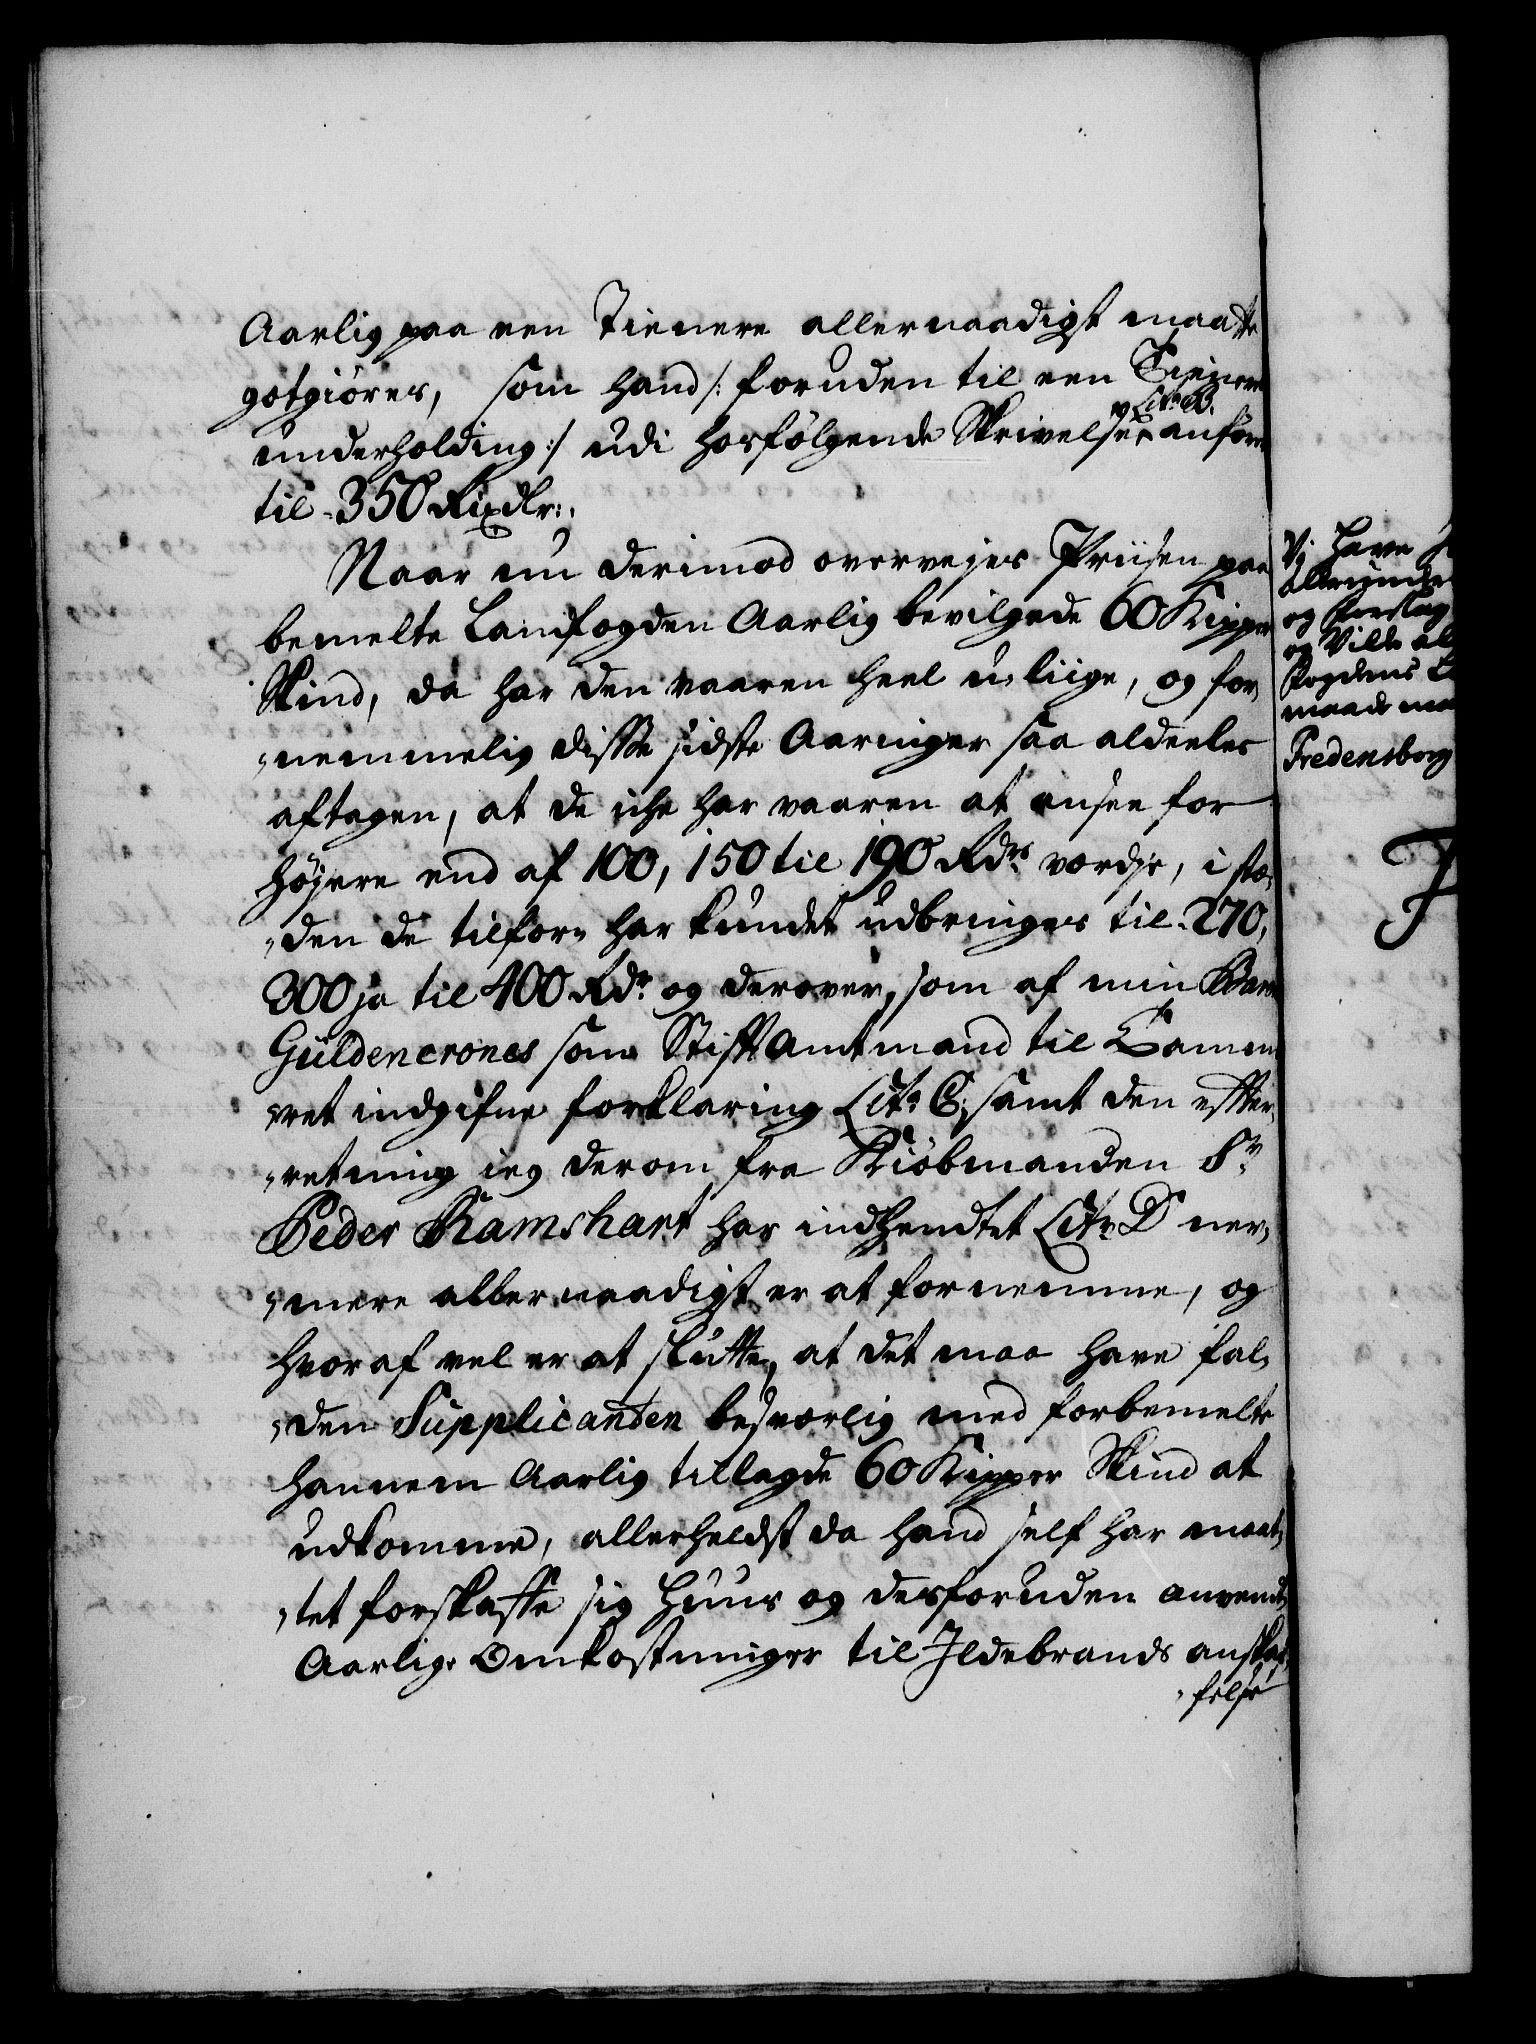 Aarlig paa een Tienere allernaadigst maatte
gotgiöres, som hand /: foruden til een Tieneres
Lit: B.
underholding :/ udi hosfölgende Skrivelser anförer
til 350 Rixdlr:.
Naar nu derimod overvejes Priisen paa
bemelte Landfogden Aarlig bevilgede 60 Kipper
Skind, da har den vaaren heel u-liige, og for,
,nemmelig disse sidste Aaringer saa aldeeles
aftagen, at de iche har vaaren at ansee for
höjere end af 100, 150 til 190 Rdrs værdje, i stæ,
,den de tilforn har kundet udbringes til 270,
300 ja til 400 Rdr og derover, som af min Baron
Güldencrones som Stiftamtmand til Cammer
,ret indgifne forklaring Litr C, samt den efter,
,retning ieg derom fra Kiöbmanden Sr
Peder Ramshart har indhendtet Litr D ner,
,mere allernaadigst er at fornemme, og
hvoraf vel er at slutte, at det maa have fal,
,den Supplicanten besværlig med forbemelte
hannem Aarlig tillagde 60 Kipper Skind at
udkomme, allerheldst da hand self har maat,
,tet forskaffe sig Huus og desforuden anvendt
Aarlige Omkostninger til Jldebrands anskaf,
,felse
Vj have
allerunde
og forslag
og Ville al
fogdens
maade maa
Fredensborg